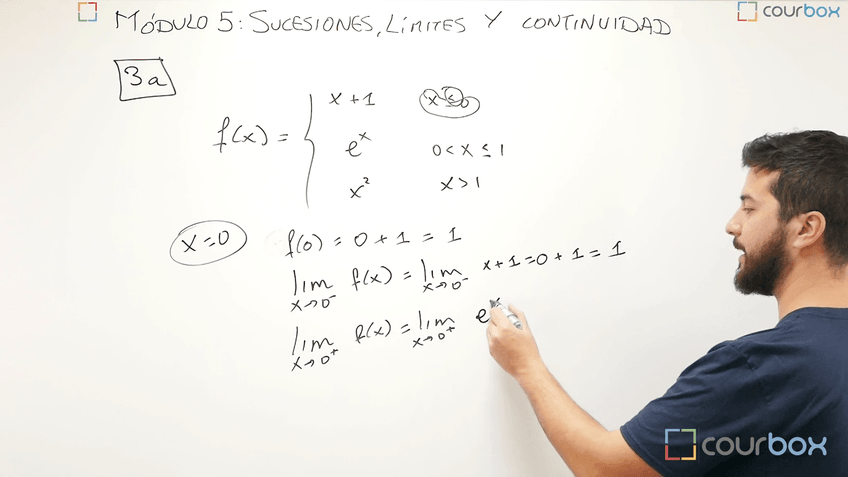 MÓDULO 5: SUCESIONES, LÍMITES Y CONTINUIDAD
courbox
3a
f(x) = { x + 1 x ≤ 0
e^x 0 < x ≤ 1
x² x > 1
x=0 f(0) = 0 + 1 = 1
lim x→0⁻ f(x) = lim x→0⁻ x + 1 = 0 + 1 = 1
lim x→0⁺ f(x) = lim x→0⁺ e^x
courbox